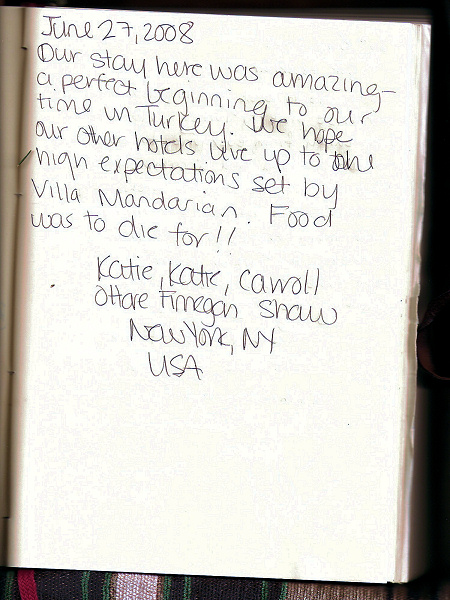 June 27, 2008
Our stay here was amazing-
a perfect beginning to our
time in Turkey. We hope
our other hotels live up to the
high expectations set by
Villa Mandarian. Food
was to die for!!
Katie, Katie, Carroll
O'Hare Finnegan Shaw
New York, NY
USA